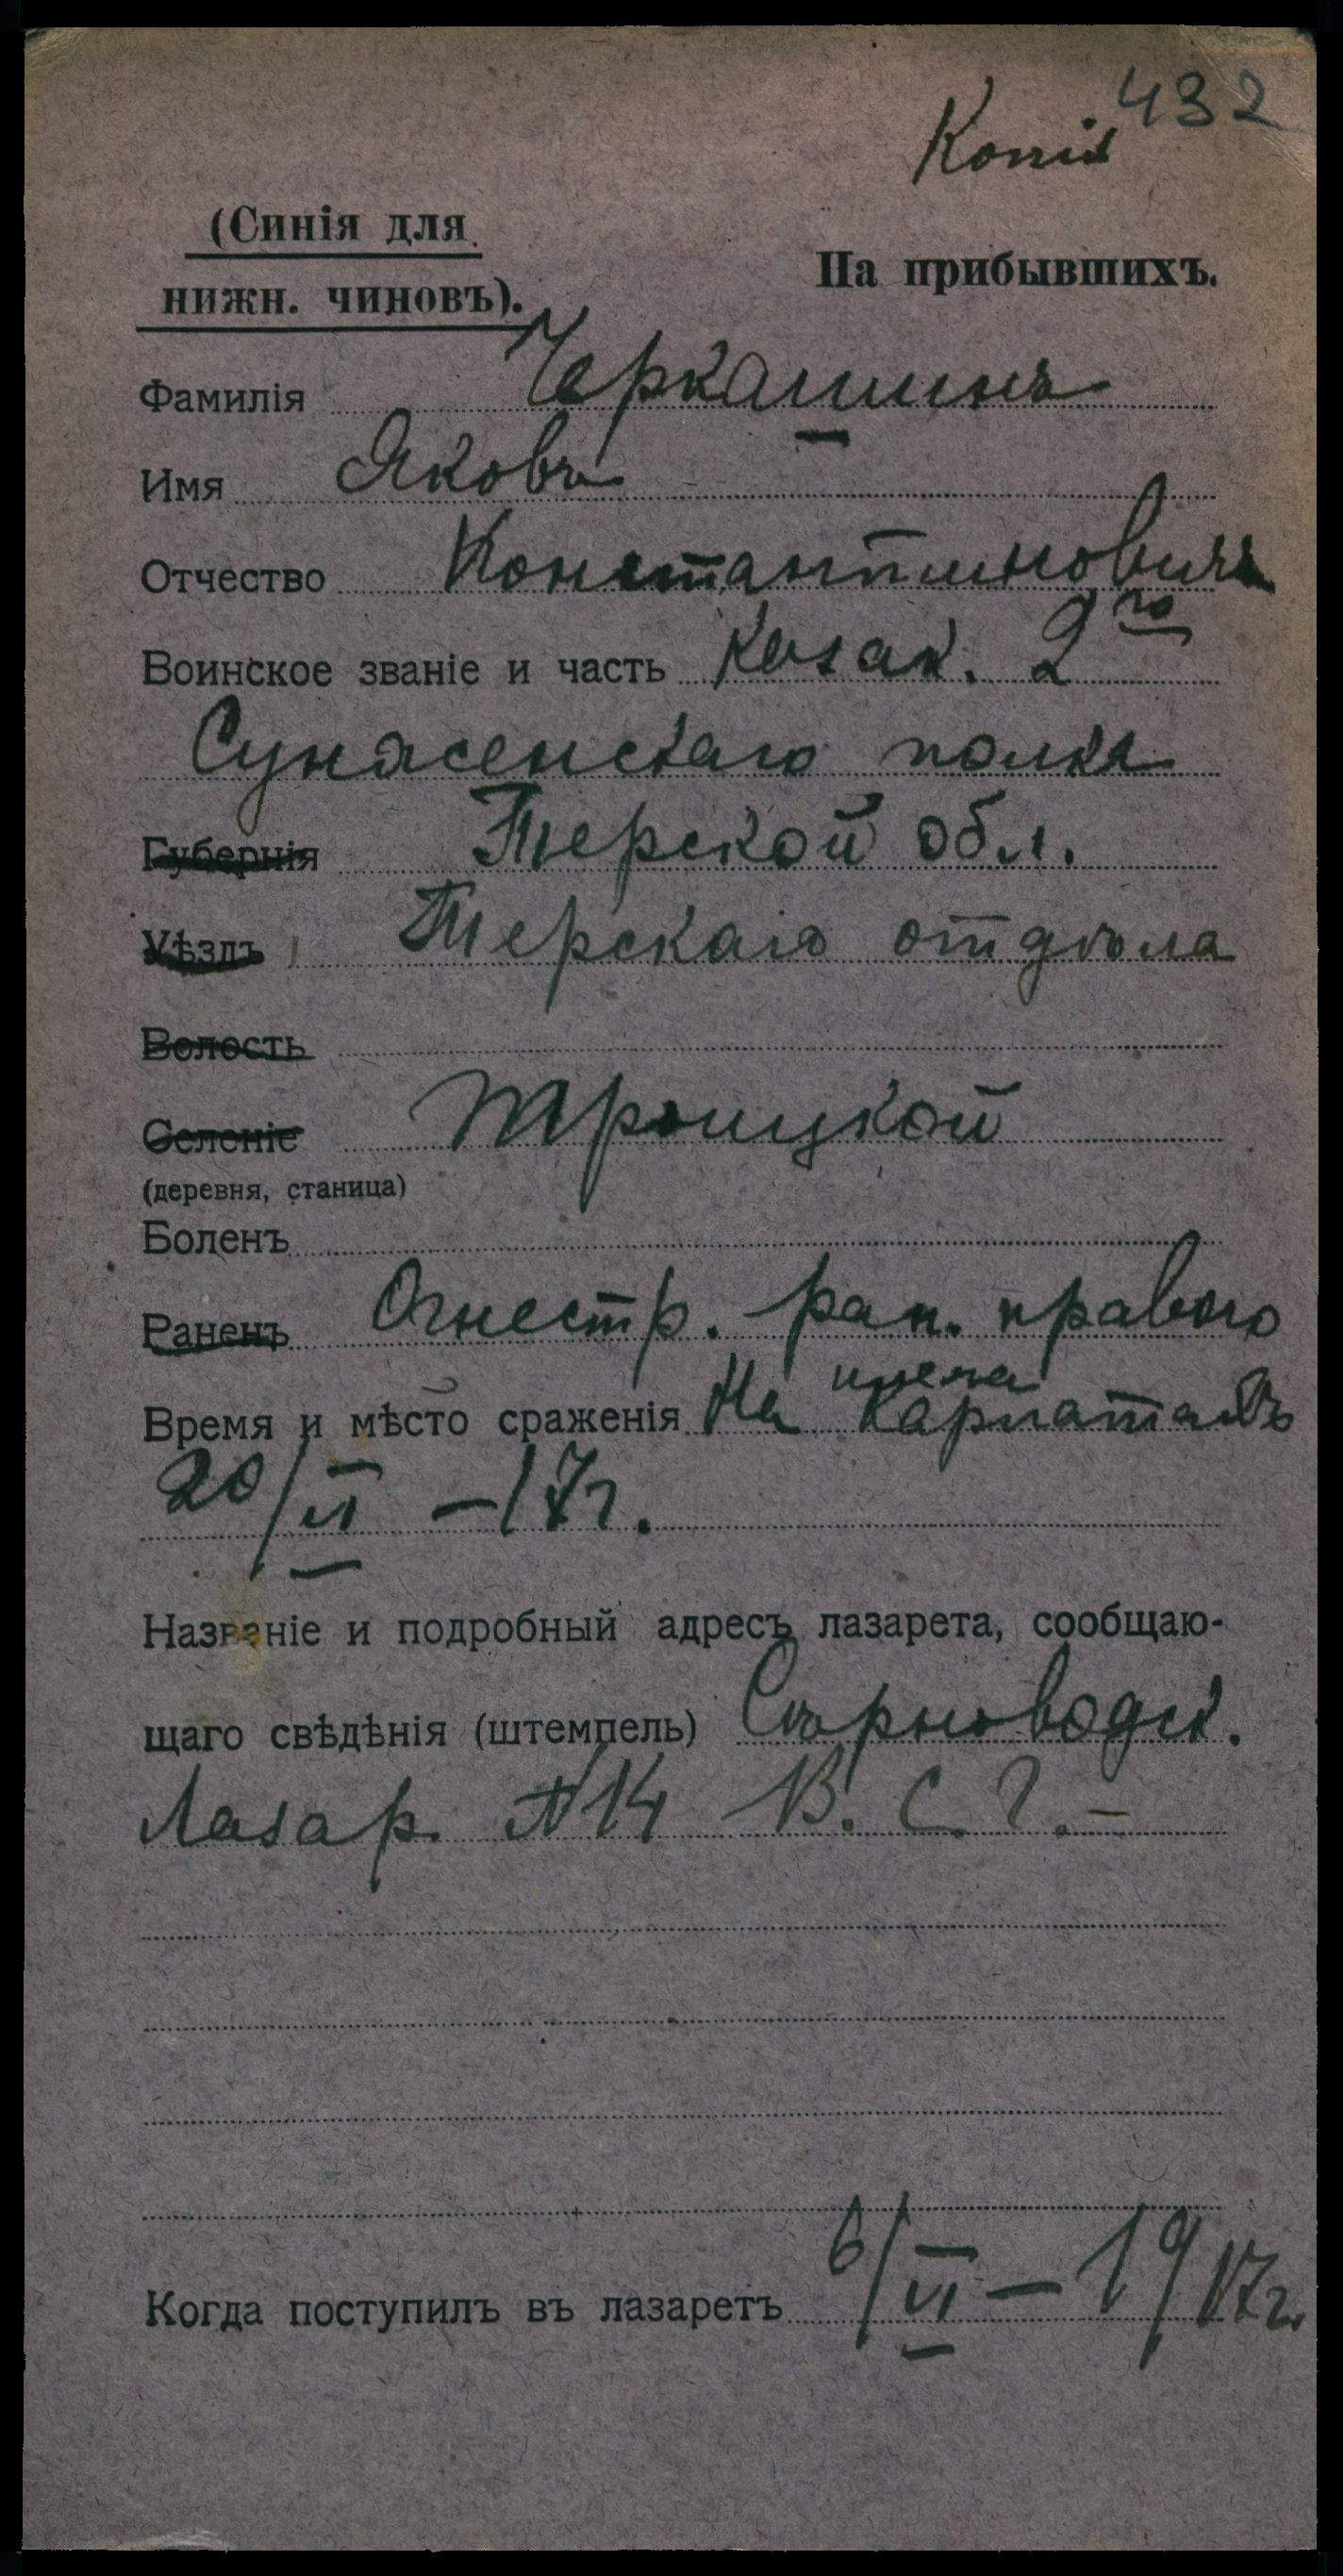 432
Копія
(Синія для
нижн. чиновъ).
На прибывшихъ.
Фамилія Черкашинъ
Имя Яковъ
Отчество Константиновичъ
Воинское званіе и часть Казак. 2го
Сунженскаго полка
Губернія Терской обл.
Уѣздъ Терскаго отдѣла
Волость
Селеніе Троицкой
(деревня, станица)
Боленъ
Раненъ Огнестр. ран. праваго
плеча
Время и мѣсто сраженія На Карпатахъ
20/VI – 17г.
Названіе и подробный адресъ лазарета, сообщаю-
щаго свѣдѣнія (штемпель) Сѣрноводск.
Лазар. №14 В. С. Г. –
Когда поступилъ въ лазаретъ 6/VI – 1917г.